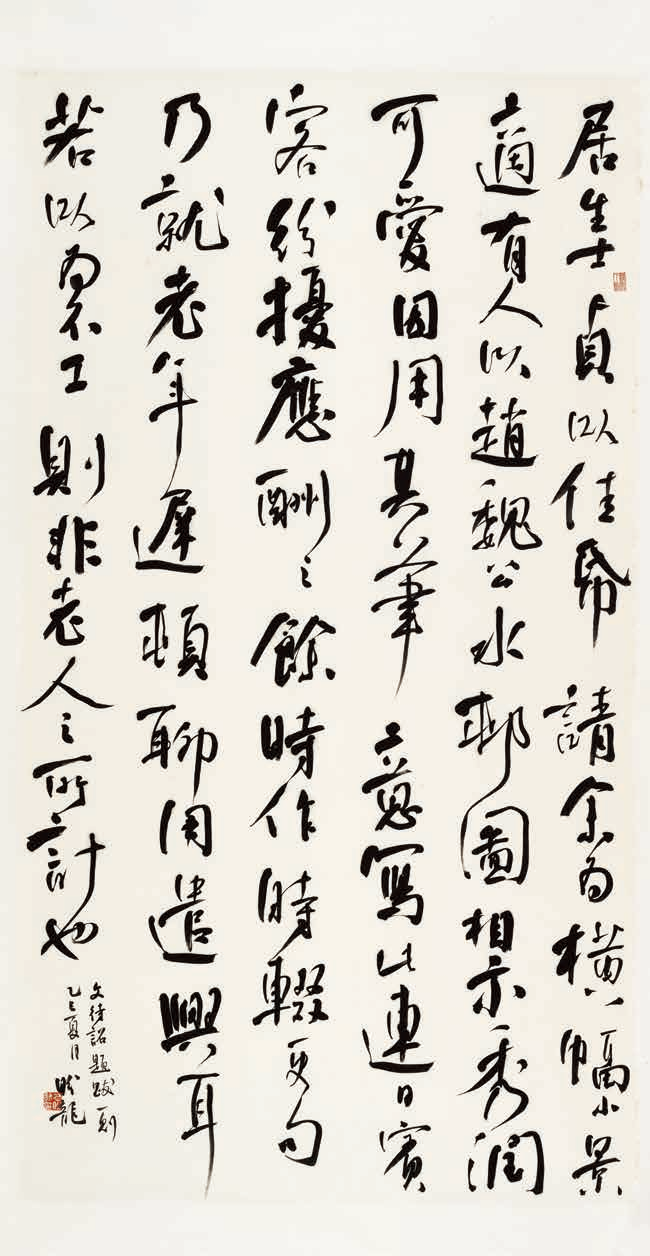 居生士貞以佳帋請余為橫幅小景
適有人以趙魏公水邨圖相示秀潤
可愛因用其筆意寫此連日賓
客紛擾應酬之餘時作時輟更旬
乃就老年遲頓聊用遣興耳
若以為不工則非老人之所計也
文待詔題跋一則
乙巳夏月 龍